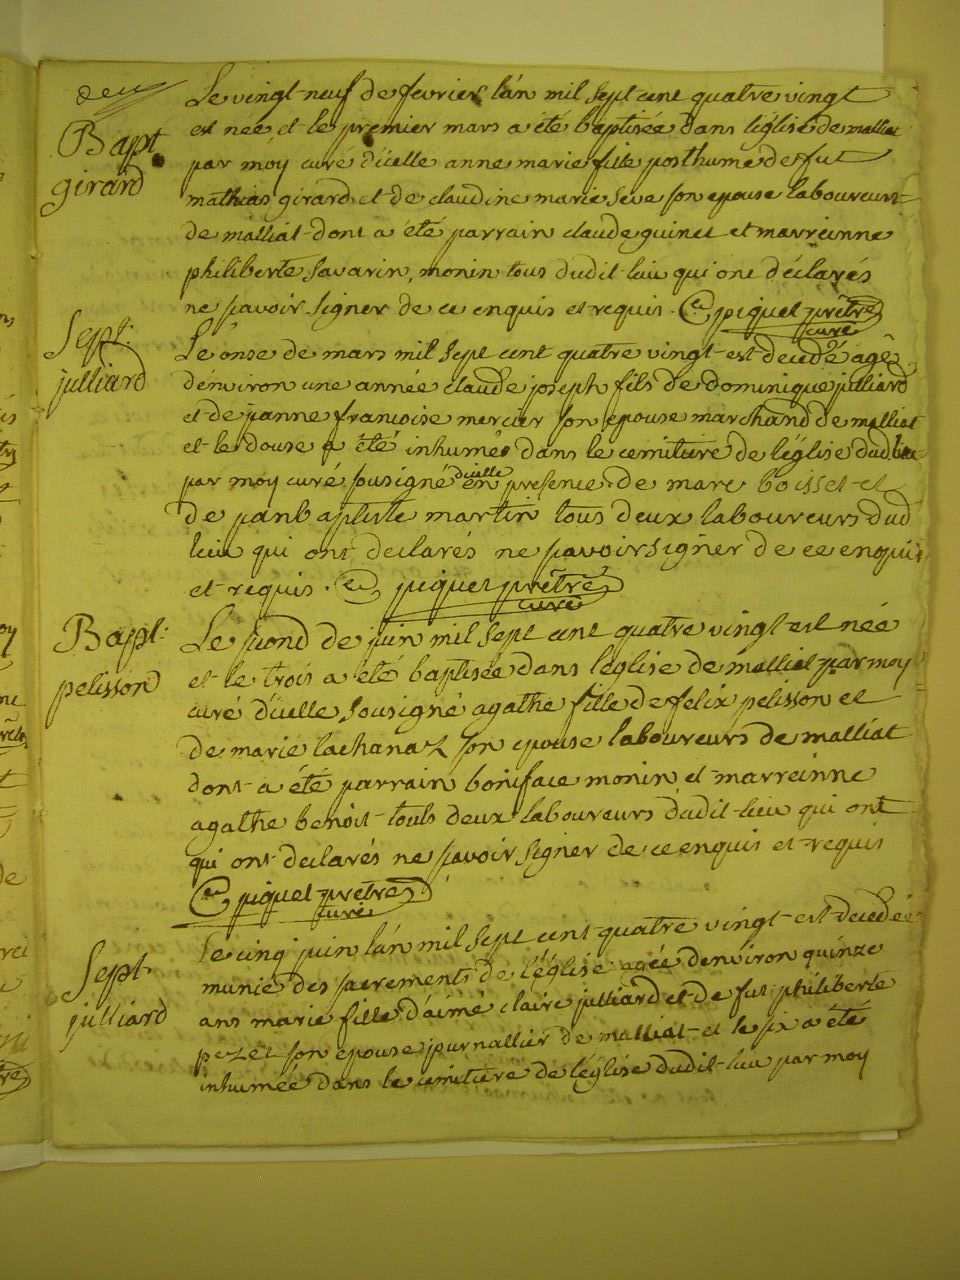 deux
Bapt
girard
Le vingt-neuf de fevrier lán mil sept cent quatre vingt
est née et le premier mars a été baptisée dans léglise de malliat
par móy curé d'icelle anne marie fille posthume de fut
mathias girard et de claudine marie seve son epouse laboureurs
de malliat dont a été parrain claude guinet et marreinne
philiberte savarin, monin tous dudit lieu qui ont déclarés
ne sçavoir signer de ce enquis et requis. piquet prêtre
curé
Sept:
julliard
Le onse de mars mil sept cent quatre vingt est decedé agê
dénviron une année claude joseph fils de dominique julliard
et de jeanne francoise mercier son epouse marchand de malliat
et le douse a été inhumé dans le cemitiere de léglise dud lieu
par moy curé sousigné dicelle en presence de marc boisset et
de jean baptiste martin tous deux laboureurs dud
lieu qui ont declarés ne sçavoir signer de ce enquis
et requis. piquet prêtre
curé
Bapt:
pelisson
Le second de juin mil sept cent quatre vingt est née
et le trois a été baptisée dans léglise de malliat par moy
curé d'icelle sousigné agathe fille de felix pelisson et
de marie lachanaz son epouse laboureurs de malliat
dont a été parrain boniface monin et marreinne
agathe benoit touts deux laboureurs dudit lieu qui ont
qui ont declarés ne sçavoir signer de ce enquis et requis
piquet prêtre
curé
Sept
julliard
Le cinq juin lán mil sept cent quatre vingt est decedée
munie des sacrements de l'église agée dénviron quinze
ans marie fille d'aimé claire julliard et de fut philiberte
pezet son epouse journallier de malliat et le six a été
inhumée dans le cemitiere de léglise dudit lieu par moy